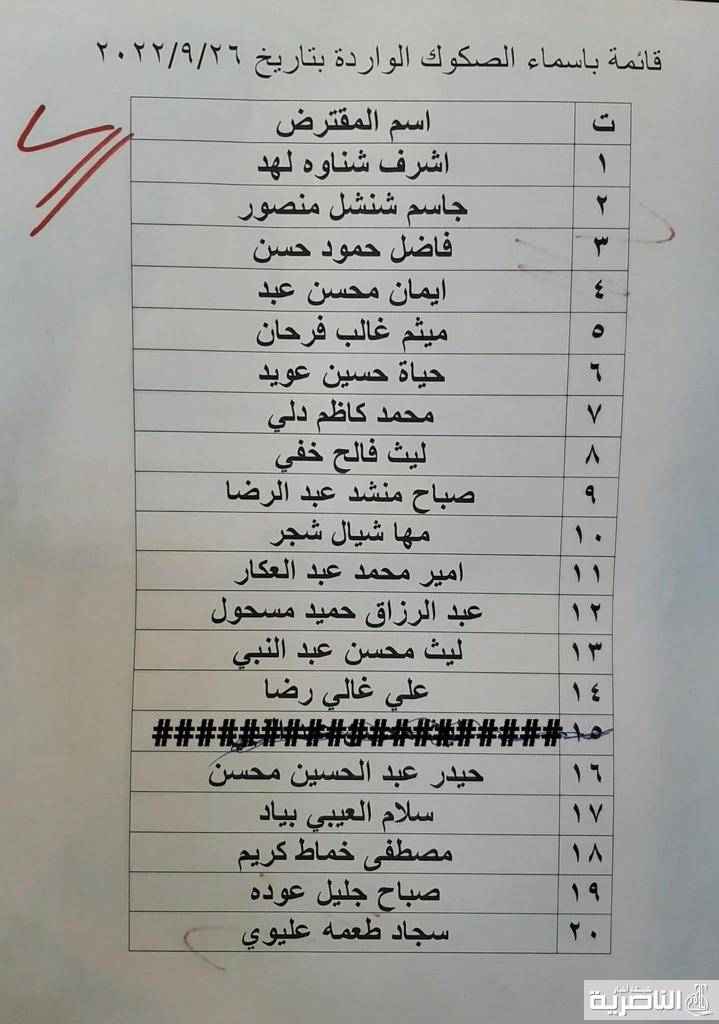 قائمة باسماء الصكوك الواردة بتاريخ ٢٠٢٢/٩/٢٦
ت اسم المقترض
١ اشرف شناوه لهد
٢ جاسم شنشل منصور
٣ فاضل حمود حسن
٤ ايمان محسن عبد
٥ ميثم غالب فرحان
٦ حياة حسين عويد
٧ محمد كاظم دلي
٨ ليث فالح خفي
٩ صباح منشد عبد الرضا
١٠ مها شيال شجر
١١ امير محمد عبد العكار
١٢ عبد الرزاق حميد مسحول
١٣ ليث محسن عبد النبي
١٤ علي غالي رضا
١٥ ###################
١٦ حيدر عبد الحسين محسن
١٧ سلام العيبي بياد
١٨ مصطفى خماط كريم
١٩ صباح جليل عوده
٢٠ سجاد طعمه عليوي
شبكة أخبار
الناصرية